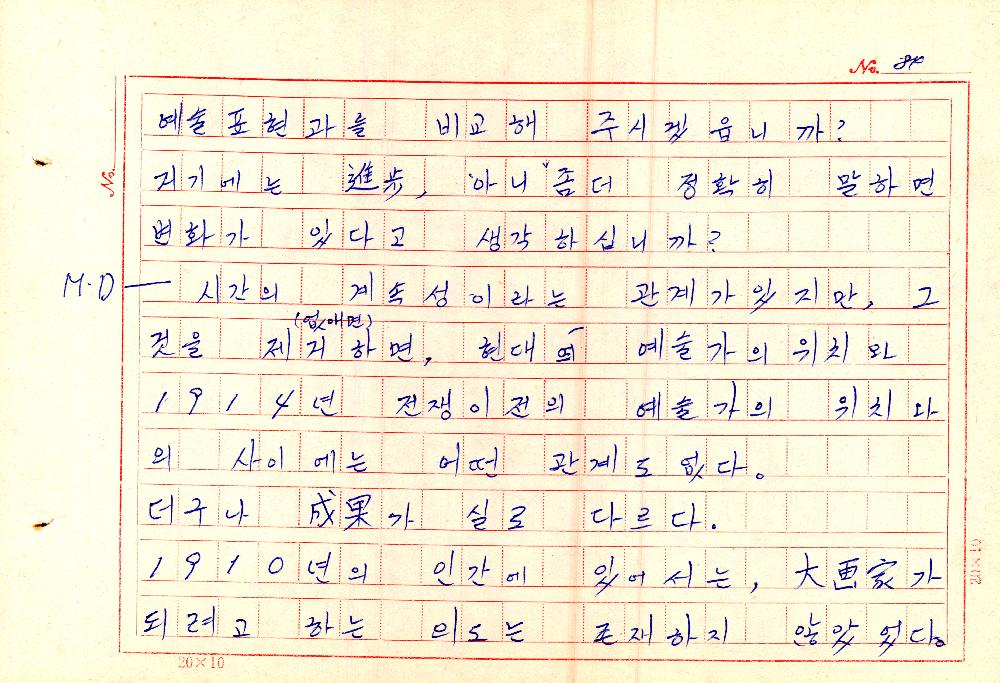 No. 84
예술표현과를 비교해 주시겠읍니까?
거기에는 進步, 아니 좀더 정확히 말하면
변화가 있다고 생각하십니까?
M.D — 시간의 계속성이라는 관계가있지만, 그
(없애면)
것을 제거하면, 현대의 예술가의 위치와
1914년 전쟁이전의 예술가의 위치와
의 사이에는 어떤 관계도 없다.
더구나 成果가 실로 다르다.
1910년의 인간에 있어서는, 大画家가
되려고 하는 의도는 존재하지 않았었다.
No.
20×10
20×10